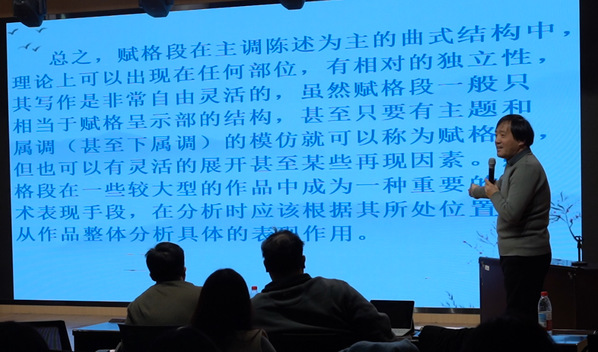 总之，赋格段在主调陈述为主的曲式结构中，
理论上可以出现在任何部位，有相对的独立性，
其写作是非常自由灵活的，虽然赋格段一般只
相当于赋格呈示部的结构，甚至只要有主题和
属调（甚至下属调）的模仿就可以称为赋格，
但也可以有灵活的展开甚至某些再现因素。
格段在一些较大型的作品中成为一种重要的
术表现手段，在分析时应该根据其所处位置
从作品整体分析具体的表现作用。